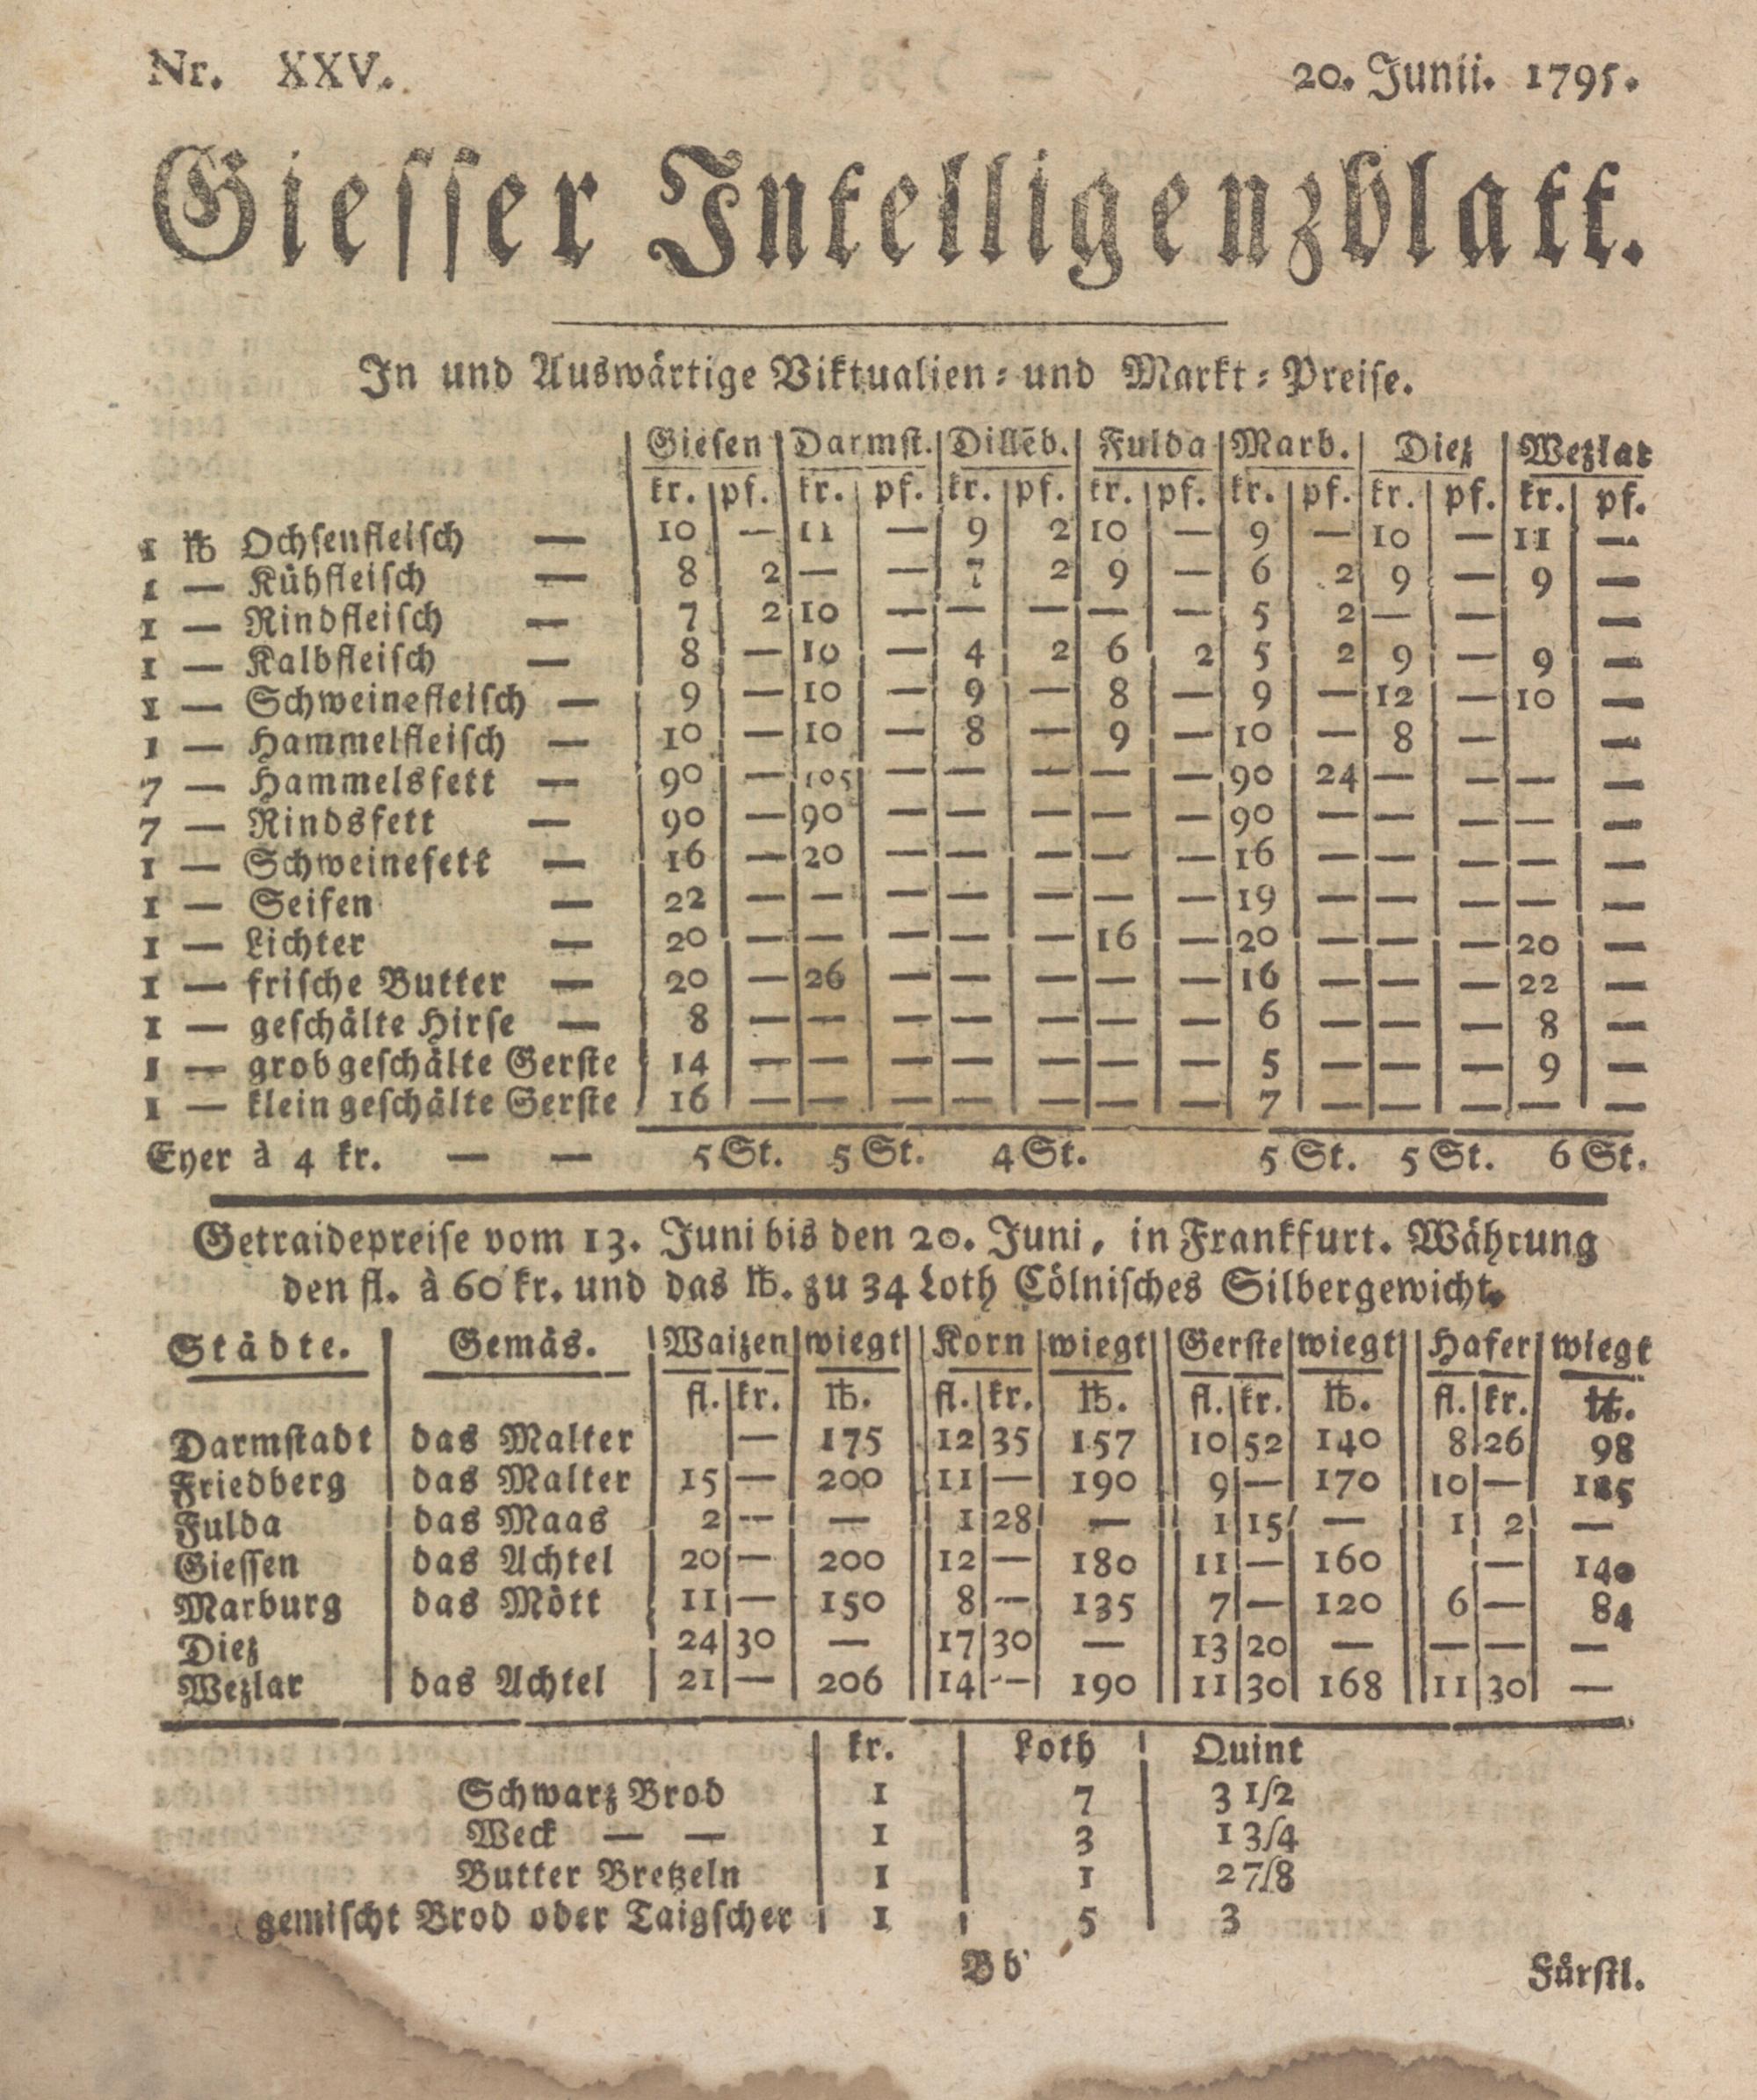 Nr. XXV. 20. Junii. 1795.
Giesser Intelligenzblatt.
In und Auswärtige Viktualien- und Markt-Preise.
Giesen Darmst. Dillēb. Fulda Marb. Diez Wezlar
kr. pf. kr. pf. kr. pf. kr. pf. kr. pf. kr. pf. kr. pf.
1 ℔ Ochsenfleisch — 10 — 11 — 9 2 10 — 9 — 10 — 11 —
1 — Kühfleisch — 8 2 — — 7 2 9 — 6 2 9 — 9 —
1 — Rindfleisch — 7 2 10 — — — — — 5 2 — — —
1 — Kalbfleisch — 8 — 10 — 4 2 6 2 5 2 9 — 9 —
1 — Schweinefleisch — 9 — 10 — 9 — 8 — 9 — 12 — 10 —
1 — Hammelfleisch — 10 — 10 — 8 — 9 — 10 — 8 — —
7 — Hammelsfett — 90 — 105 — — — — — 90 24 — — — —
7 — Rindsfett — 90 — 90 — — — — — 90 — — — — —
1 — Schweinefett — 16 — 20 — — — — — 16 — — — — —
1 — Seifen — 22 — — — — — — — 19 — — — — —
1 — Lichter — 20 — — — — — 16 — 20 — — — 20 —
1 — frische Butter — 20 — 26 — — — — — 16 — — — 22 —
1 — geschälte Hirse — 8 — — — — — — — 6 — — — 8 —
1 — grob geschälte Gerste 14 — — — — — — — 5 — — — 9 —
1 — klein geschälte Gerste 16 — — — — — — — 7 — — — — —
Eyer à 4 kr. — — 5 St. 5 St. 4 St. 5 St. 5 St. 6 St.
Getraidepreise vom 13. Juni bis den 20. Juni, in Frankfurt. Währung
den fl. à 60 kr. und das ℔. zu 34 Loth Cölnisches Silbergewicht.
Städte. Gemäs. Waizen wiegt Korn wiegt Gerste wiegt Hafer wiegt
fl. kr. ℔. fl. kr. ℔. fl. kr. ℔. fl. kr. ℔.
Darmstadt das Malter — 175 12 35 157 10 52 140 8 26 98
Friedberg das Malter 15 — 200 11 — 190 9 — 170 10 — 185
Fulda das Maas 2 — — 1 28 — 1 15 — 1 2 —
Giessen das Achtel 20 — 200 12 — 180 11 — 160 — 140
Marburg das Mött 11 — 150 8 — 135 7 — 120 6 — 84
Diez 24 30 — 17 30 — 13 20 — — — —
Wezlar das Achtel 21 — 206 14 — 190 11 30 168 11 30 —
kr. Loth Quint
Schwarz Brod 1 7 3 1/2
Weck — — 1 3 1 3/4
Butter Bretzeln 1 1 2 7/8
gemischt Brod oder Taigscher 1 5 3
Bb Fürstl.